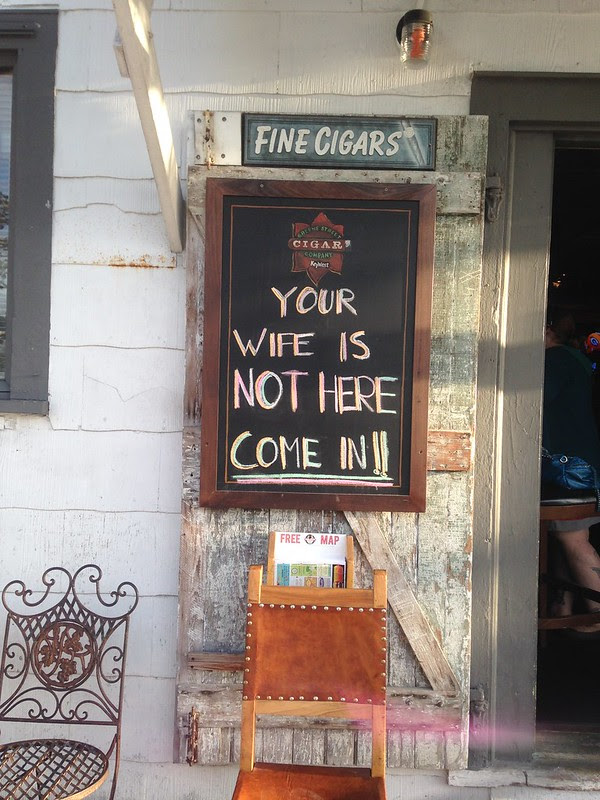 FINE CIGARS
GREENE STREET
CIGAR
COMPANY
Key West
YOUR
WIFE IS
NOT HERE
COME IN!!
FREE MAP